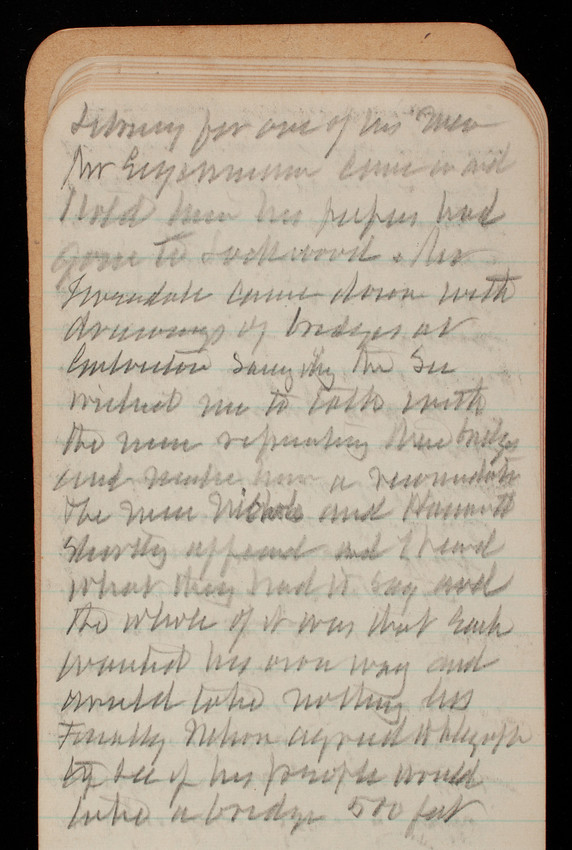 for one of his men
Mr came in and
I told him his papers had
gone to Lockwood. Mr
came down with
drawings of bridges at
Galveston saying the Sec
wished me to talk with
the men repressenting these bridges
and make him a recomendation
The men Nichols and
Shortly appeared and I heard
what they had to say and
the whole of it was that each
wanted his own way and
would take nothing less
Finally Nelson agreed to telegraph
to see if his people would
take a bridge 500 feet